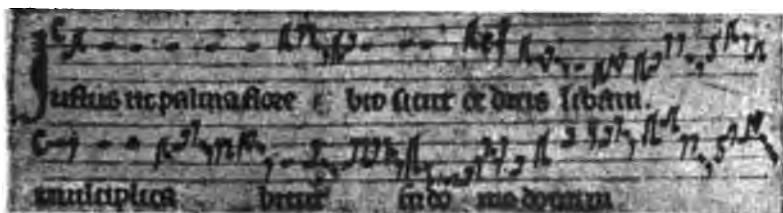 Justus ut palma flore bit sicut cedrus libani
multiplica bitur in do mo domini